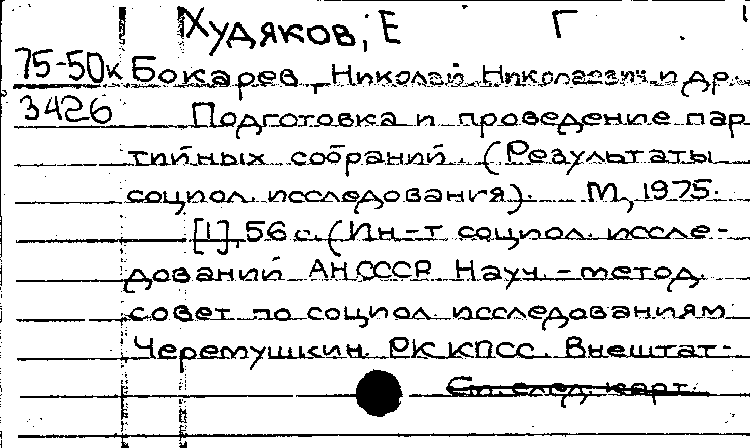 Худяков, Е Г
75-50к Бокарев, Николай Николаевич и др.
3426 Подготовка и проведение пар
тийных собраний. (Результаты
социол. исследования). М, 1975.
[1], 56 с. (Ин-т социол. иссле-
дований АН СССР. Науч.-метод.
совет по социол. исследованиям
Черемушкин. РК КПСС. Внештат-
См. след. карт.